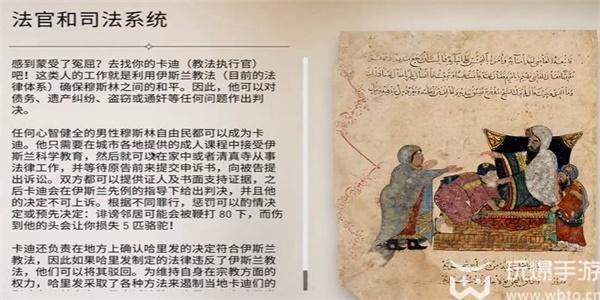 法官和司法系统
感到蒙受了冤屈？去找你的卡迪（教法执行官）
吧！这类人的工作就是利用伊斯兰教法（目前的法
律体系）确保穆斯林之间的和平。因此，他可以对
债务、遗产纠纷、盗窃或通奸等任何问题作出判
决。
任何心智健全的男性穆斯林自由民都可以成为卡
迪。他只需要在城市各地提供的成人课程中接受伊
斯兰科学教育，然后就可以在家中或者清真寺从事
法律工作，并等待原告前来提交申诉书，向被告提
出诉讼。双方都可以提供证人及书面支持证据，之
后卡迪会在伊斯兰先例的指导下给出判决，并且他
的决定不可上诉。根据不同罪行，惩罚可以酌情决
定或预先决定：诽谤邻居可能会被鞭打 80 下，而伤
到他的头会让你损失 5 匹骆驼！
卡迪还负责在地方上确认哈里发的决定符合伊斯兰
教法，因此如果哈里发制定的法律违反了伊斯兰教
法，他们可以将其驳回。为维持自身在宗教方面的
权力，哈里发采取了各种方法来遏制当地卡迪们的
玩爆手游
www.wbto.cn